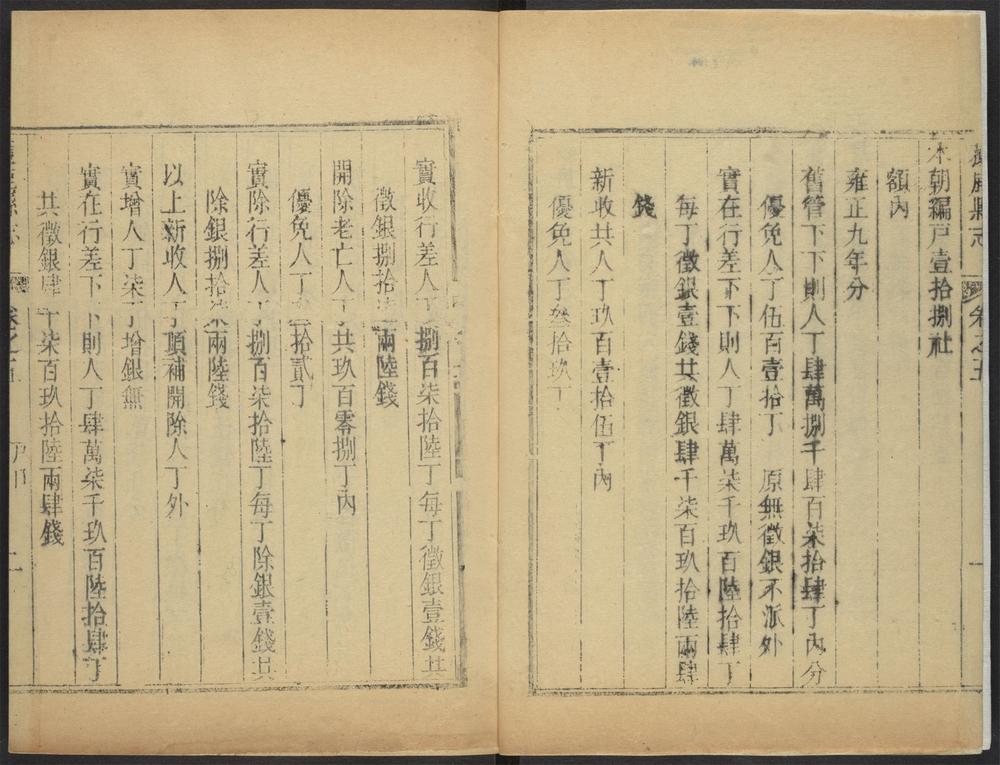 縣志 卷之五
本朝編戸壹拾捌社
額內
雍正九年分
舊管下下則人丁肆萬捌千肆百柒拾肆丁內分
優免人丁伍百壹拾丁 原無徵銀不派外
實在行差下下則人丁肆萬柒千玖百陸拾肆丁
每丁徵銀壹錢共徵銀肆千柒百玖拾陸兩肆
錢
新收共人丁玖百壹拾伍丁內
優免人丁叁拾玖丁
實收行差人丁捌百柒拾陸丁每丁徵銀壹錢共
徵銀捌拾柒兩陸錢
開除老亡人丁共玖百零捌丁內
優免人丁叁拾貳丁
實除行差人丁捌百柒拾陸丁每丁除銀壹錢共
除銀捌拾柒兩陸錢
以上新收人丁頂補開除人丁外
實增人丁柒丁增銀無
實在行差下下則人丁肆萬柒千玖百陸拾肆丁
共徵銀肆千柒百玖拾陸兩肆錢
縣志 卷之五 二